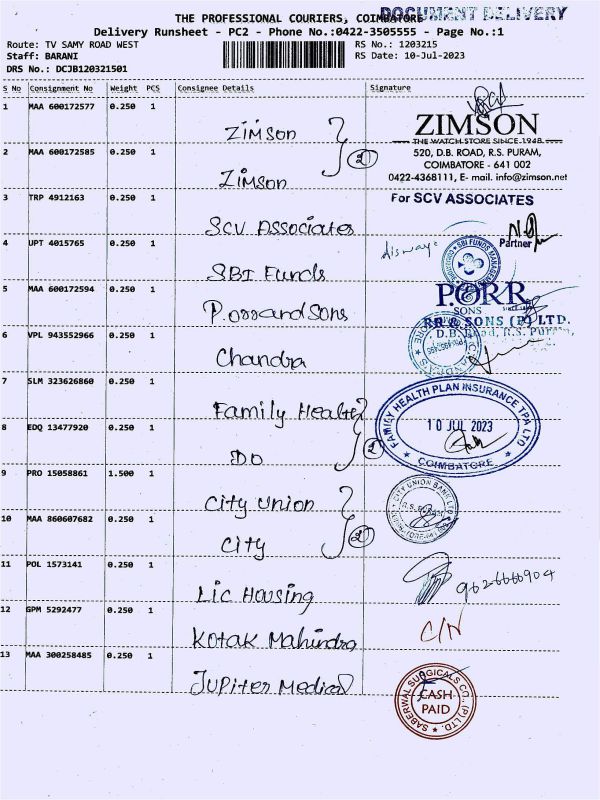 DOCUMENT DELIVERY
THE PROFESSIONAL COURIERS, COIMBATORE
Delivery Runsheet - PC2 - Phone No.:0422-3505555 - Page No.:1
Route: TV SAMY ROAD WEST RS No.: 1203215
Staff: BARANI RS Date: 10-Jul-2023
DRS No.: DCJB120321501
S No Consignment No Weight PCS Consignee Details Signature
1 MAA 600172577 0.250 1 Zimson
ZIMSON
THE WATCH STORE SINCE 1948
2 MAA 600172585 0.250 1 Zimson
2
520, D.B. ROAD, R.S. PURAM,
COIMBATORE - 641 002
0422-4368111, E- mail. info@zimson.net
3 TRP 4912163 0.250 1 SCV Associates
For SCV ASSOCIATES
Partner
4 UPT 4015765 0.250 1 SBI Funds
SBI FUNDS
5 MAA 600172594 0.250 1 P.orrandSons
P.ORR
SONS
RR & SONS (P) LTD.
D.B. Road, R.S. Puram,
6 VPL 943552966 0.250 1 Chandra
7 SLM 323626860 0.250 1 Family Health
FAMILY HEALTH PLAN INSURANCE TPA LTD
10 JUL 2023
COIMBATORE
8 EDQ 13477920 0.250 1 DO
2
9 PRO 15058861 1.500 1 City Union
CITY UNION BANK LTD
10 MAA 860607682 0.250 1 City
2
11 POL 1573141 0.250 1 Lic Housing
9626660904
12 GPM 5292477 0.250 1 Kotak Mahindra
C/N
13 MAA 300258485 0.250 1 Jupiter Medical
SABERWAL SURGICALS CO., (P) LTD.
CASH
PAID